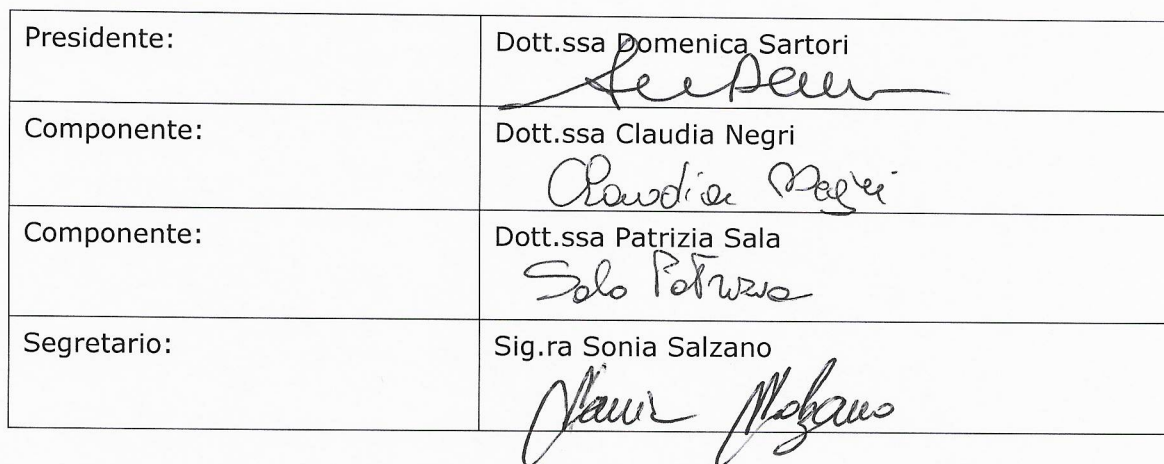 Presidente:
Dott.ssa Domenica Sartori
Componente:
Dott.ssa Claudia Negri
Claudia Negri
Componente:
Dott.ssa Patrizia Sala
Sala Patrizia
Segretario:
Sig.ra Sonia Salzano